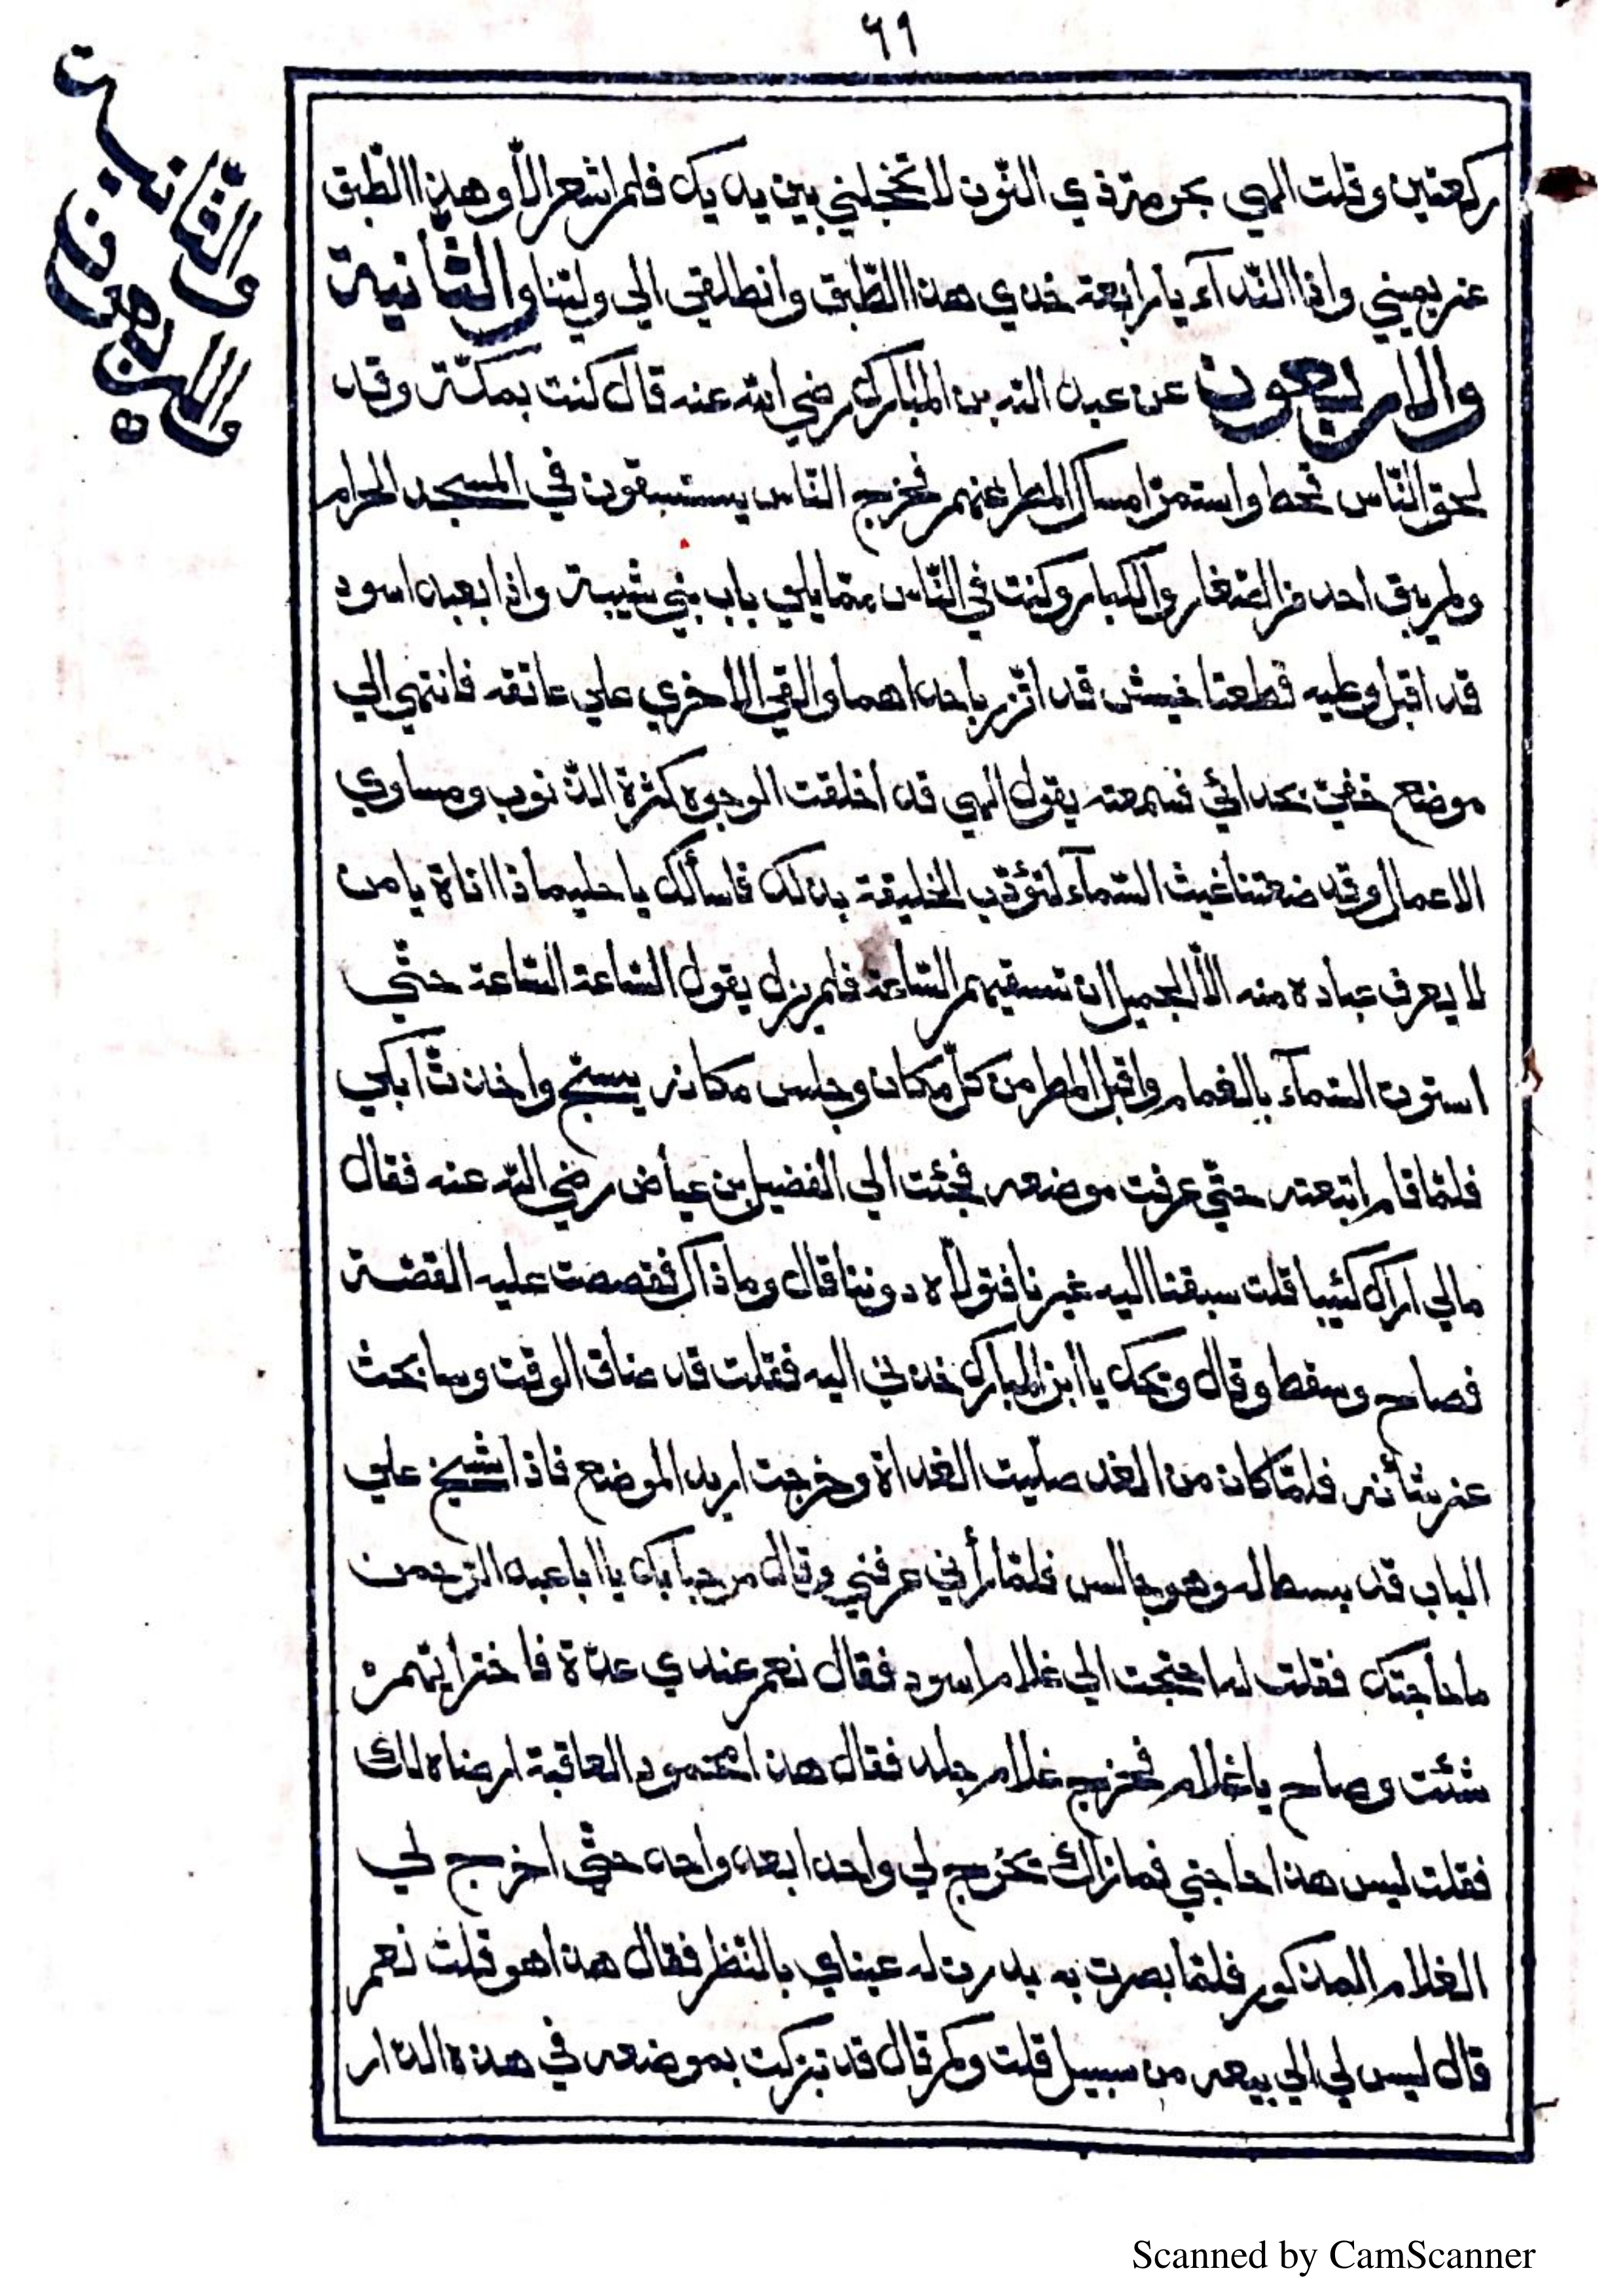 ٦١
والثانية
والاربعون
ركعتين وقلت الهي بحرمة ذي النون لا تخجلني بين يديك فلم اشعر الّا وهذا الطّبق
عن يميني واذا النّدآء يا رابعة خذي هذا الطّبق وانطلقي الي وليّنا والثّانية
والاربعون عن عبد الله بن المبارك رضي الله عنه قال كنت بمكّة وقد
لحق النّاس قحط واستمرّ امساك المطر عنهم فخرج النّاس يستسقون في المسجد الحرام
ولم يبق احد من الصّغار والكبار وكنت في النّاس ممّا يلي باب بني شيبة واذا بعبد اسود
قد اقبل وعليه قطعتا خيش قد اتّزر باحداهما والقي الاخري علي عاتقه فانتهي الي
موضع خفيّ بحدائي فسمعته يقول الهي قد اخلقت الوجوه كثرة الذّنوب ومساوي
الاعمال وقد منعتنا غيث السّمآء لتؤدّب الخليقة بذلك فاسألك يا حليما ذا اناة يا من
لا يعرف عباده منه الّا الجميل ان تسقيهم السّاعة فلم يزل يقول السّاعة السّاعة حتّي
استوت السّمآء بالغمام واقبل المطر من كلّ مكان وجلس مكانه يسبّح واخذتّ ابكي
فلمّا قام اتبعته حتّي عرفت موضعه فجئت الي الفضيل بن عياض رضي اللّه عنه فقال
مالي اراك كئيبا قلت سبقنا اليه غيرنا فتولّاه دوننا قال وما ذاك فقصصت عليه القصّة
فصاح وسقط وقال ويحك يا ابن المبارك خذني اليه فقلت قد ضاق الوقت وسابحث
عن شأنه فلمّا كان من الغد صلّيت الغداة وخرجت اريد الموضع فاذا شيخ علي
الباب قد بسط له وهو جالس فلمّا رأني عرفني وقال مرحبا بك يا ابا عبد الرّحمن
ما حاجتك فقلت له احتجت الي غلام اسود فقال نعم عندي عدّة فاختر ايّهم
شئت وصاح يا غلام فخرج غلام جلد فقال هذا محمود العاقبة ارضاه لك
فقلت ليس هذا حاجتي فما زال يخرج لي واحدا بعد واحد حتّي اخرج لي
الغلام المذكور فلمّا بصرت به بدرت له عيناي بالنّظر فقال هذا هو قلت نعم
قال ليس لي الي بيعه من سبيل قلت ولم قال قد تبرّكت بموضعه في هذه الدّار
Scanned by CamScanner